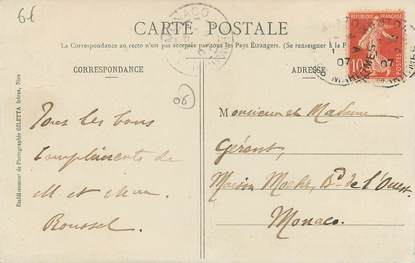 6f
CARTE POSTALE
La Correspondance au recto n'est pas acceptée par tous les Pays Étrangers. (Se renseigner à la P
CORRESPONDANCE
ADRESSE
06
Établissement de Photographie GILETTA frères, Nice
Tous les bons
Compliments de
M et Mme
Roussel.
MONACO
RÉPUBLIQUE FRANÇAISE
10
07
07
MARITIMES
Monsieur et Madame
Gérant,
Maison Bd de l'Ouest
Monaco.